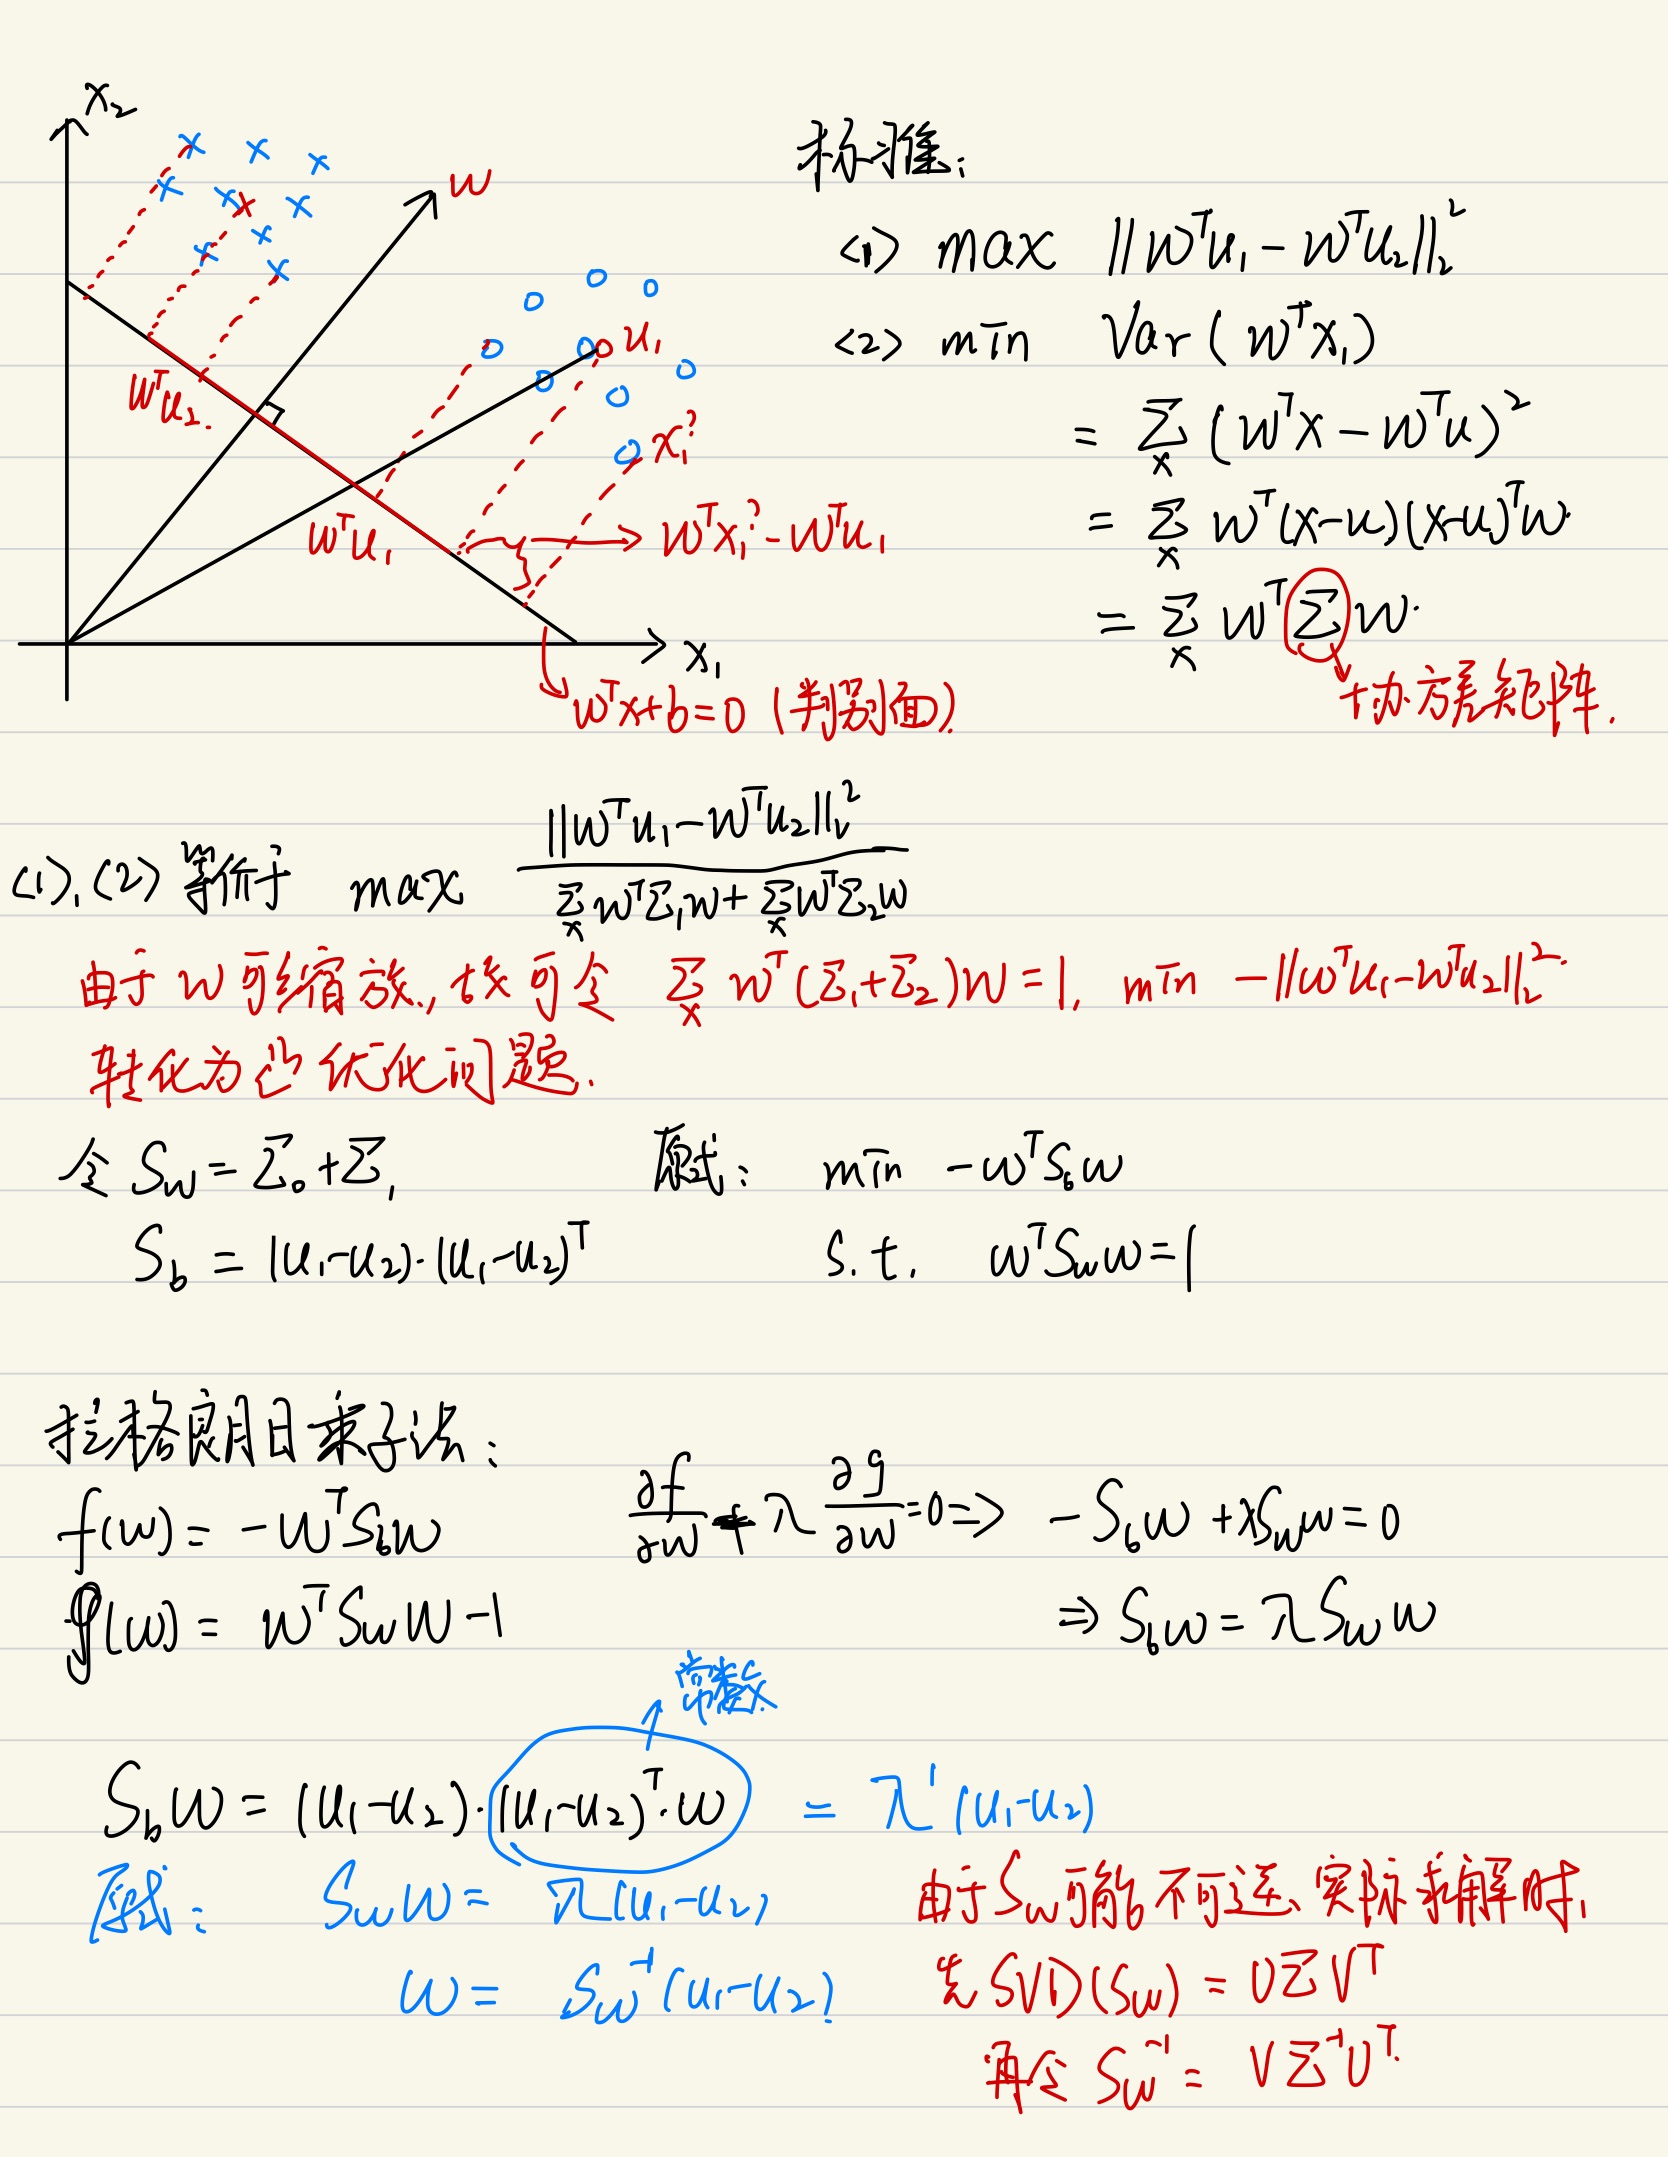 x₂
w
u₁
x₁ʔ
wᵀu₂.
wᵀu₁
wᵀx₁ʔ - wᵀu₁
x₁
wᵀx+b=0 (判别面).
标准:
<1> max ||wᵀu₁ - wᵀu₂||₂²
<2> min Var(wᵀx₁)
= Σₓ (wᵀx - wᵀu)²
= Σₓ wᵀ(x-u)(x-u)ᵀw.
= Σₓ wᵀΣw.
协方差矩阵.
<1>,<2> 等价于 max ||wᵀu₁ - wᵀu₂||₂² / Σₓ wᵀΣ₁w + Σₓ wᵀΣ₂w
由于 w 可缩放, 故可令 Σₓ wᵀ(Σ₁+Σ₂)w = 1, min -||wᵀu₁-wᵀu₂||₂².
转化为凸优化问题.
令 S_w = Σ₀+Σ₁ 原式: min -wᵀS_b w
S_b = (u₁-u₂)·(u₁-u₂)ᵀ s.t. wᵀS_w w = 1
拉格朗日乘子法:
f(w) = -wᵀS_b w ∂f/∂w + λ ∂g/∂w = 0 => -S_b w + λS_w w = 0
g(w) = wᵀS_w w - 1 => S_b w = λ S_w w
常数
S_b w = (u₁-u₂)·(u₁-u₂)ᵀ·w = λ'(u₁-u₂)
原式: S_w w = λ(u₁-u₂)
w = S_w⁻¹(u₁-u₂)
由于S_w可能不可逆、实际求解时,
先 SVD(S_w) = UΣVᵀ
再令 S_w⁻¹ = VΣ⁻¹Uᵀ.